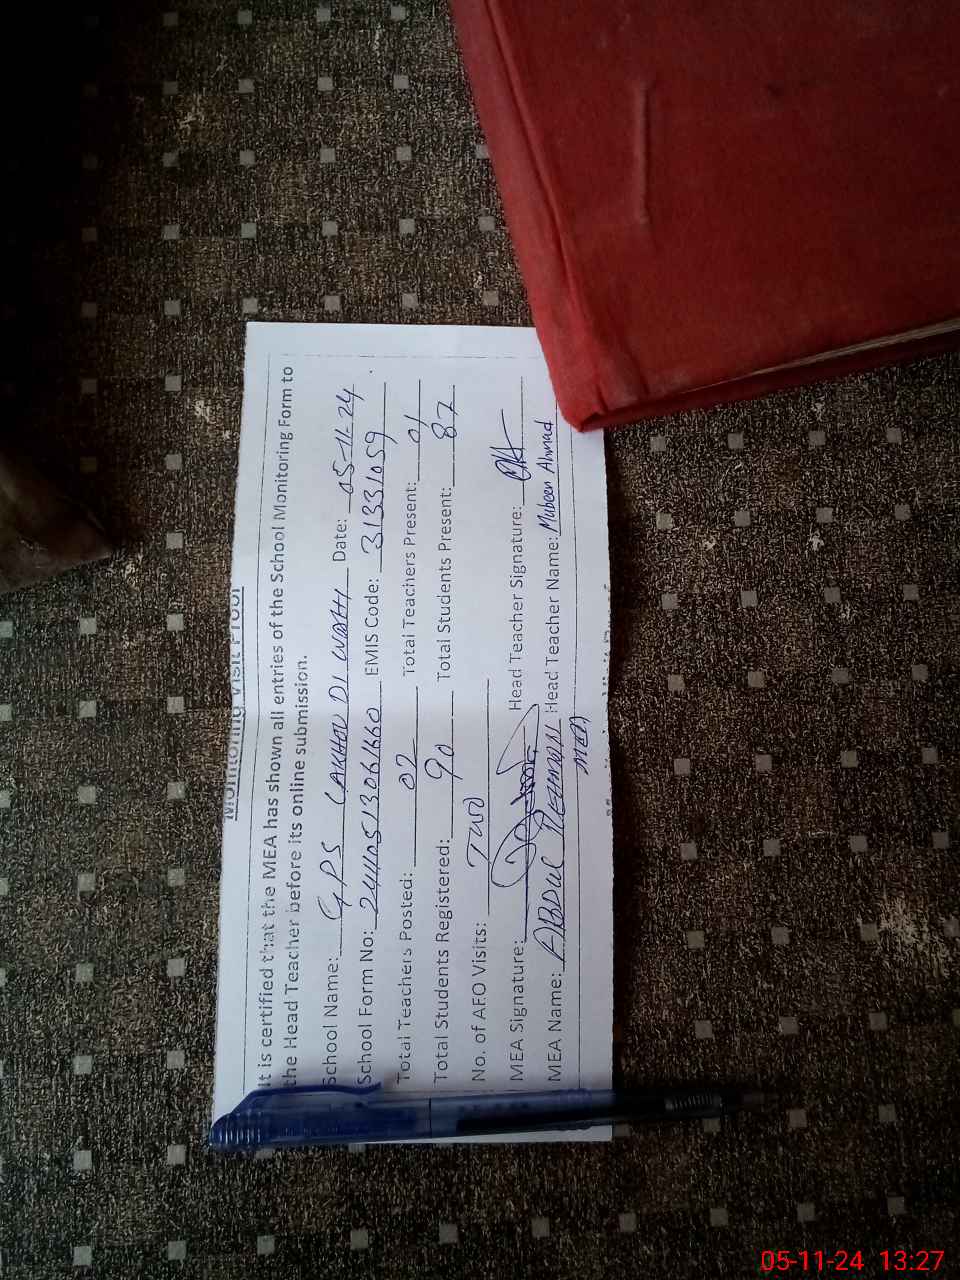 Monitoring Visit Proof
It is certified that the MEA has shown all entries of the School Monitoring Form to
the Head Teacher before its online submission.
School Name: GPS LAKHOU DI WAHI Date: 05-11-24
School Form No: 24110513061660 EMIS Code: 31331059
Total Teachers Posted: 02 Total Teachers Present: 01
Total Students Registered: 90 Total Students Present: 82
No. of AEO Visits: TWO
MEA Signature: Head Teacher Signature:
MEA Name: ABDUL REHMAN Head Teacher Name: Mubeen Ahmad
MEA
05-11-24 13:27